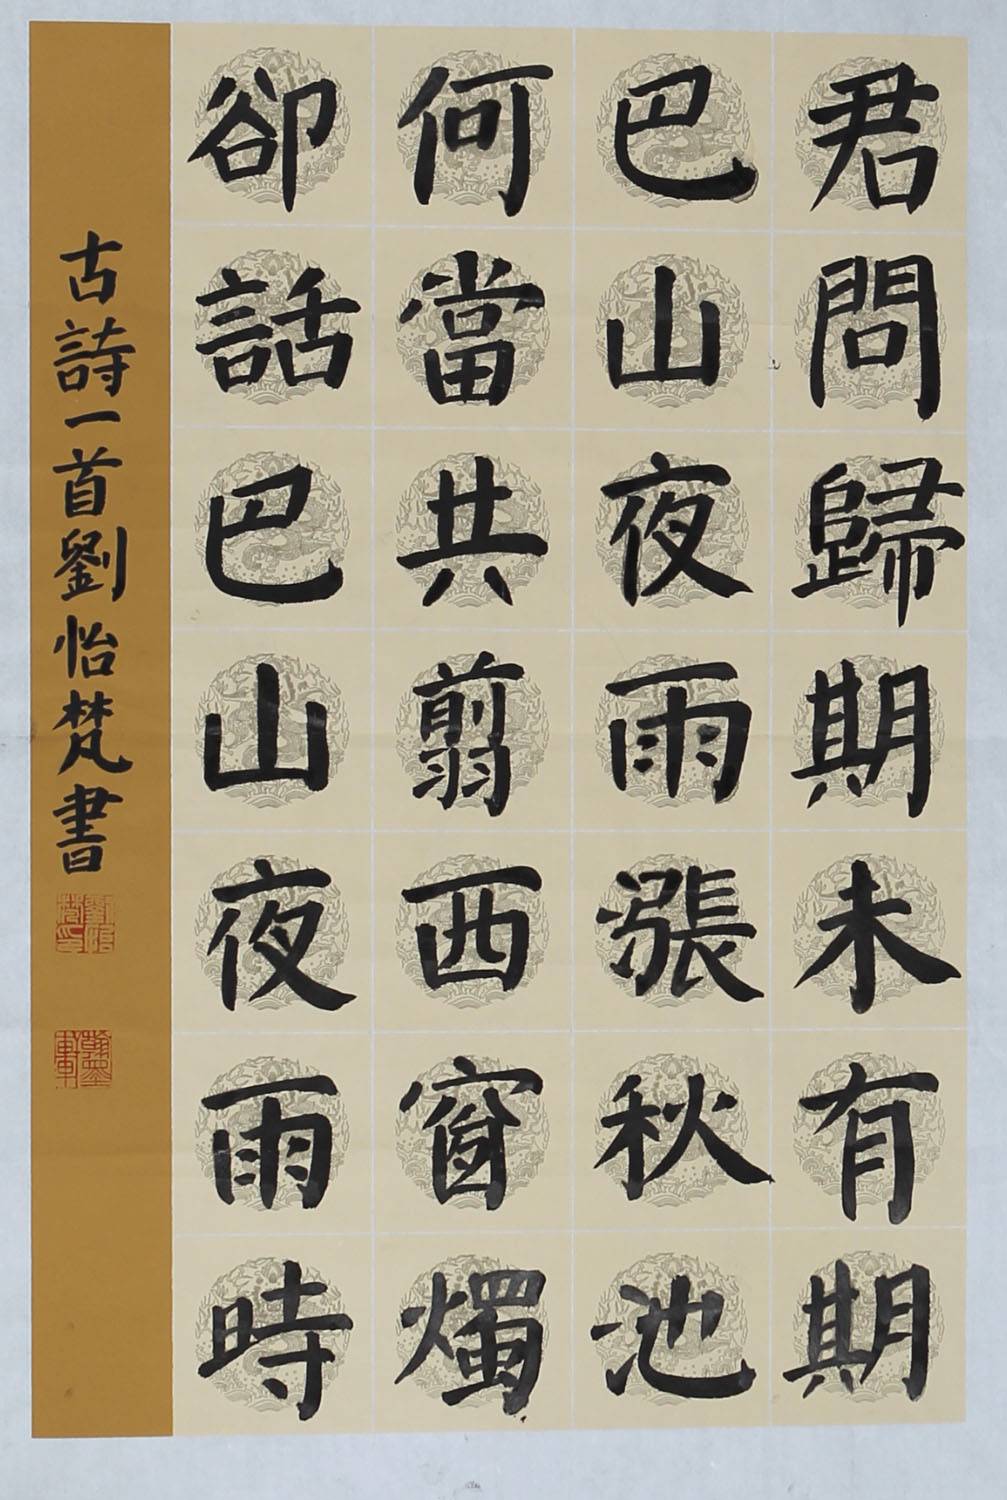 君問歸期未有期
巴山夜雨漲秋池
何當共翦西窗燭
卻話巴山夜雨時
古詩一首劉怡梵書
劉怡梵印
翰墨軒